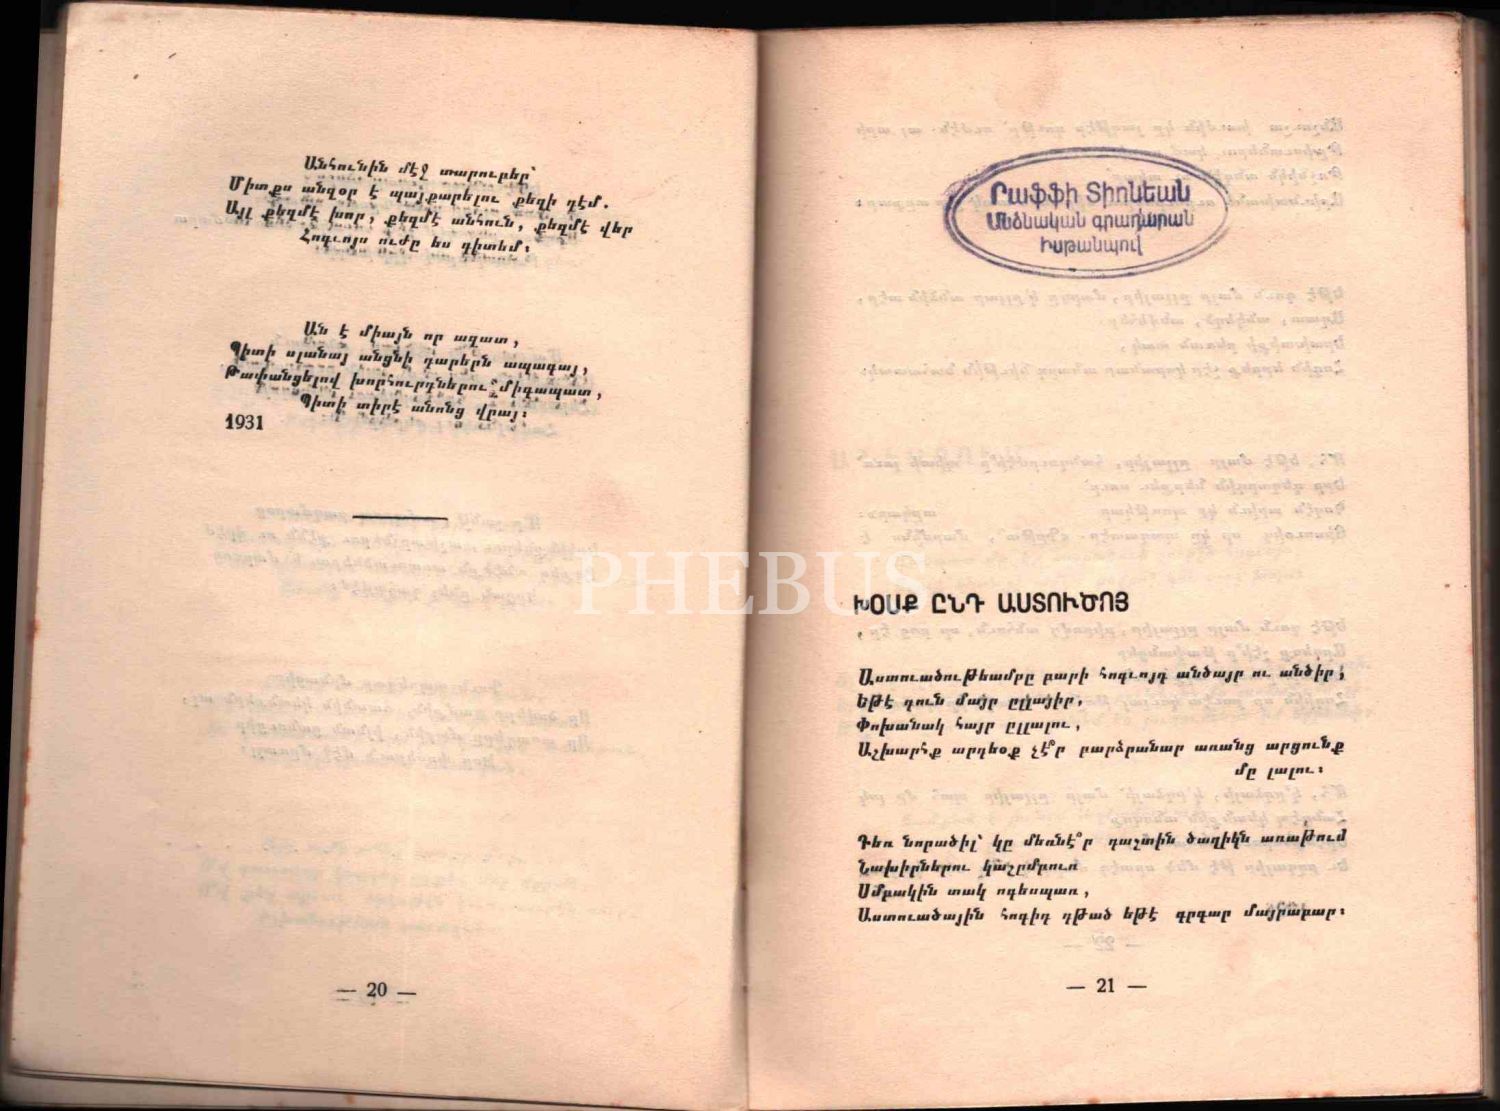 Անհունին մէջ տարուբեր՝
Միտքս անզօր է պայքարելու քեզի դէմ.
Այլ քեզմէ խոր, քեզմէ անհուն, քեզմէ վեր
Հոգւոյս ուժը ես գիտեմ:
Ան է միայն որ ազատ,
Պիտի սլանայ անցնի դարերն ապագայ,
Թափանցելով խորհուրդներու միգապատ,
Պիտի տիրէ անոնց վրայ:
1931
— 20 —
Րաֆֆի Տիոնեան
Անձնական գրադարան
Իսթանպուլ
ԽՕՍՔ ԸՆԴ ԱՍՏՈՒԾՈՅ
Աստուածութեամբը բարի հոգւոյդ անծայր ու անծիր;
Եթէ դուն մայր ըլլայիր,
Փոխանակ հայր ըլլալու,
Աշխարհք արդեօք չէ՞ր բարձրանար առանց արցունք
մը լալու:
Դեռ նորածիլ՝ կը մեռնէ՞ր դաշտին ծաղիկն առաթուր
Նախիրներու կաշըմբուռ
Սմբակին տակ ոգեսպառ,
Աստուածային հոգիդ գթած եթէ զրզար մայրաբար:
— 21 —
PHEBUS